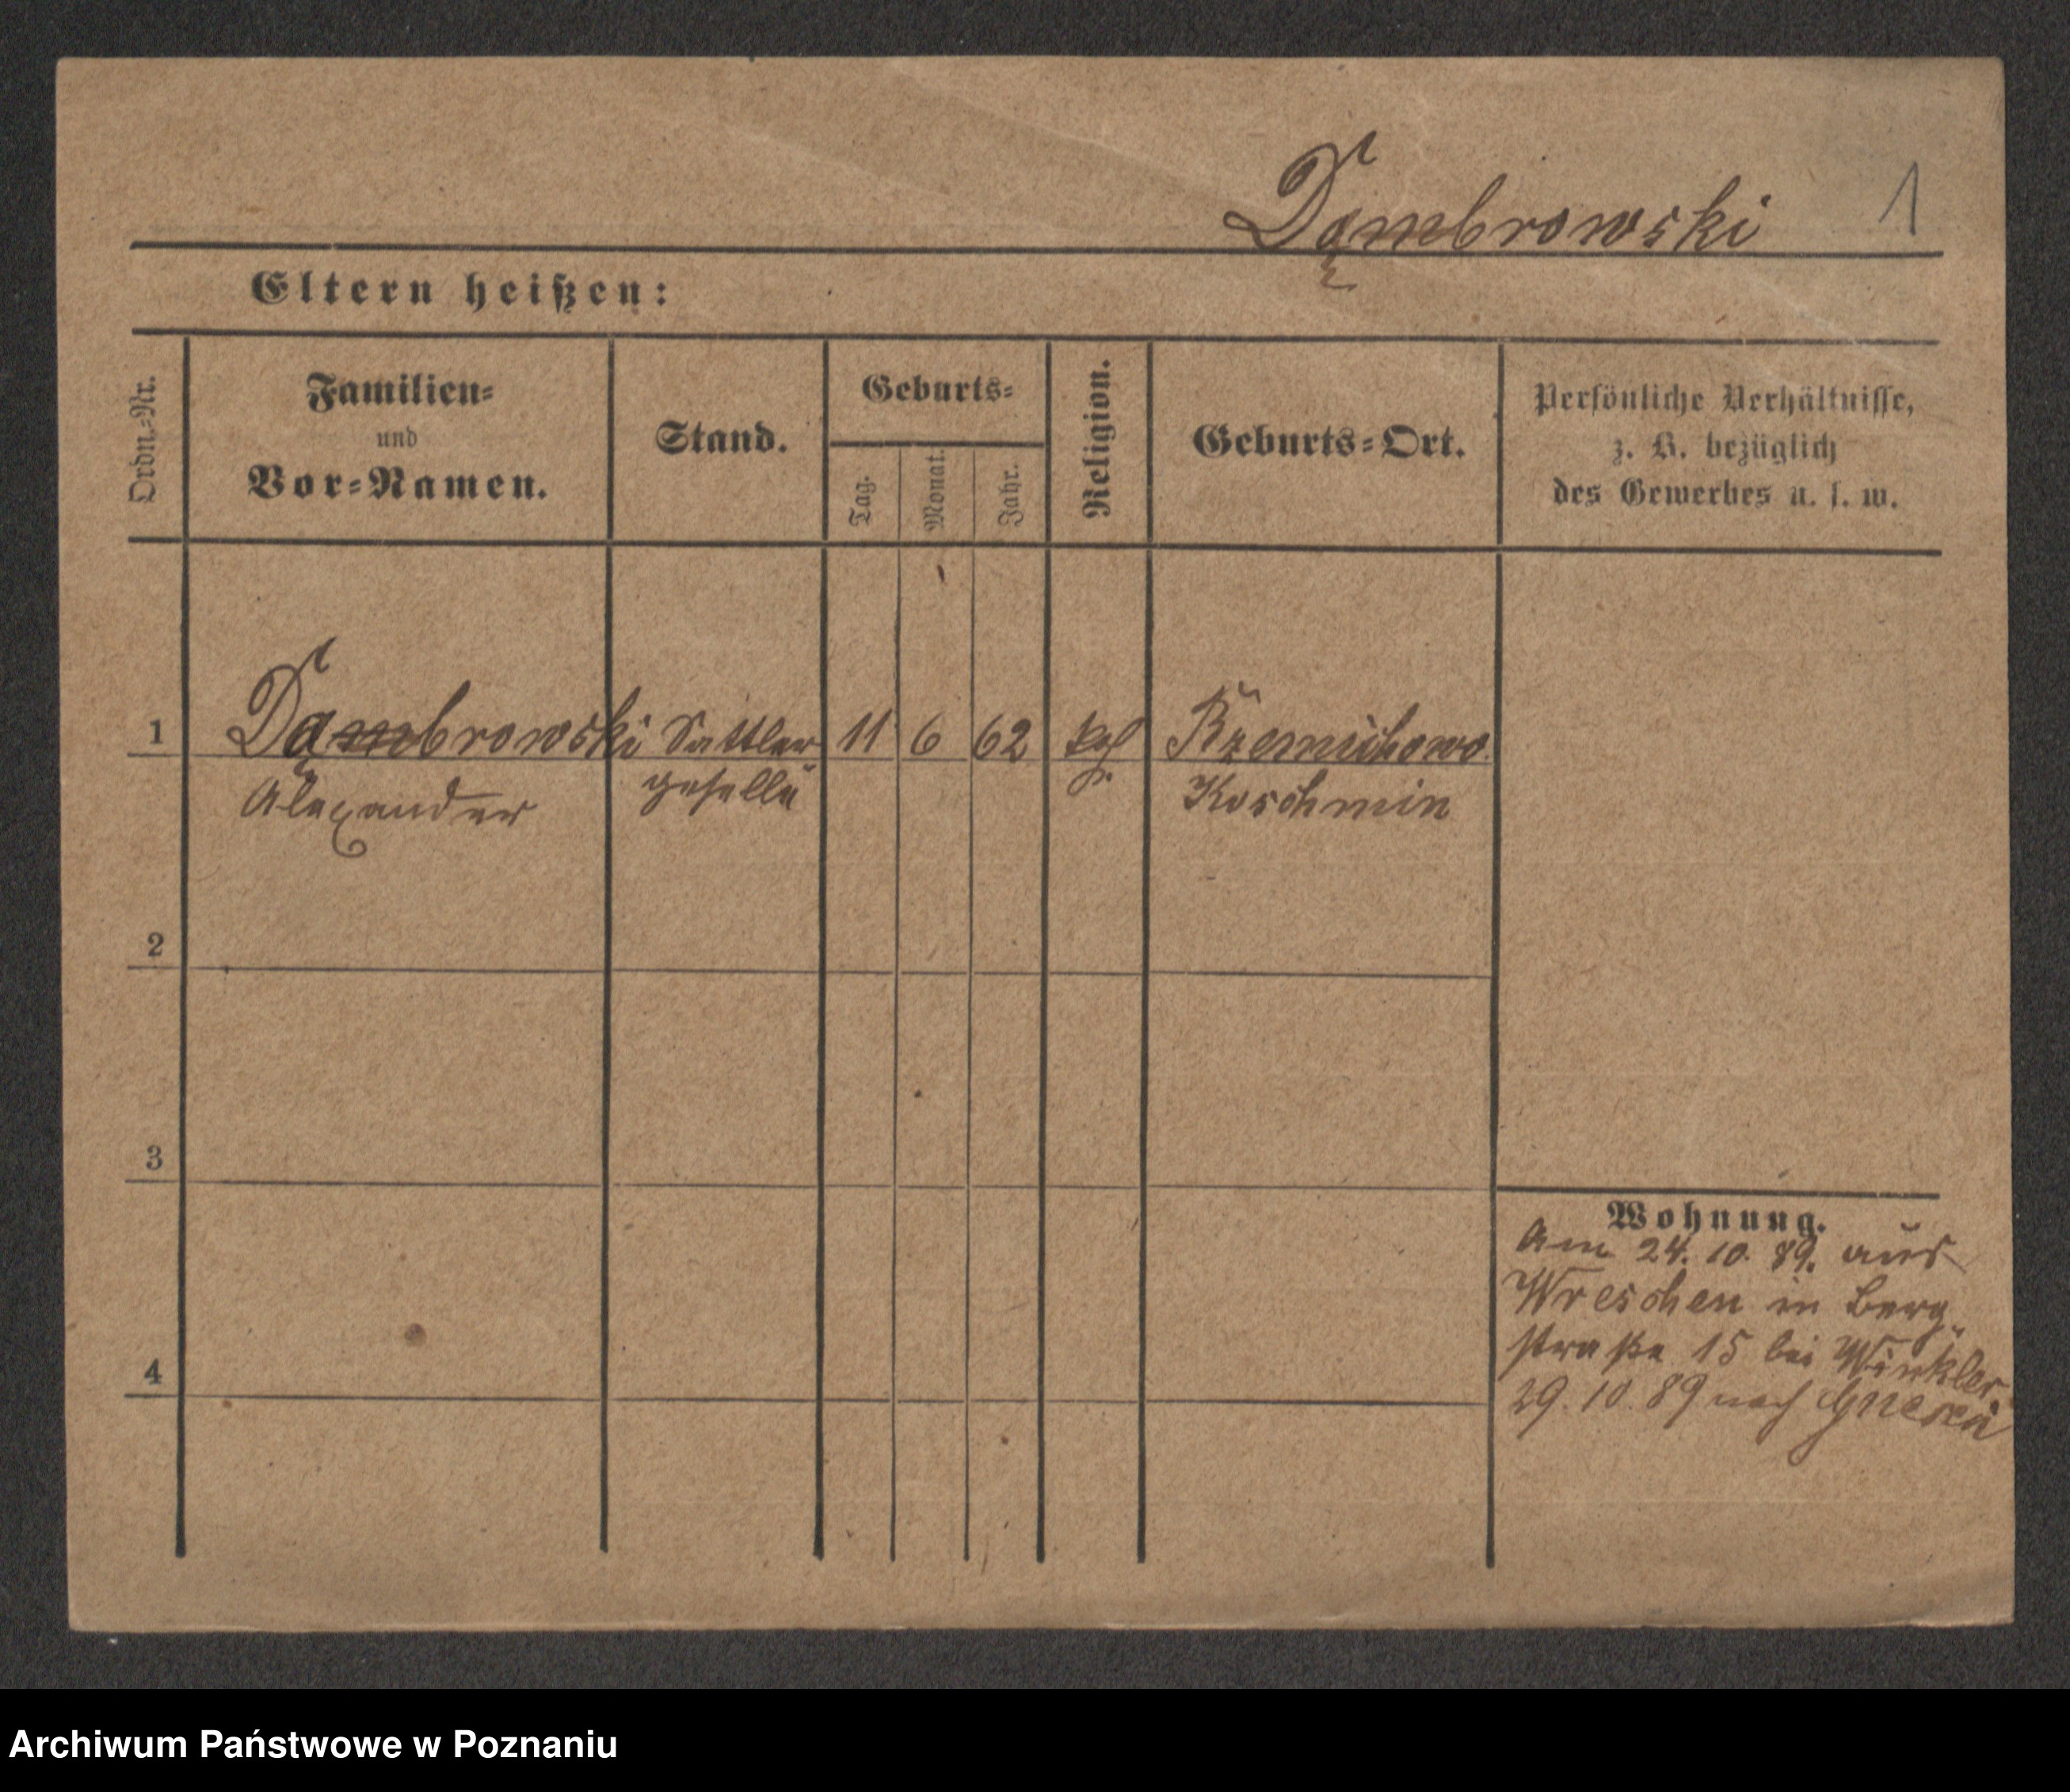 Dąmbrowski 1
Eltern heißen:
Ordn.-Nr.
Familien-
und
Vor-Namen.
Stand.
Geburts-
Tag.
Monat.
Jahr.
Religion.
Geburts-Ort.
Persönliche Verhältnisse,
z. B. bezüglich
des Gewerbes u. s. w.
1 Dąmbrowski Sattler 11 6 62
Alexander geselle Koschmin
2
3
4
Wohnung.
Am 24. 10. 89. aus
Wreschen in Berg-
straße 15 bei Winkler
29. 10. 89 nach Gnesen
Archiwum Państwowe w Poznaniu